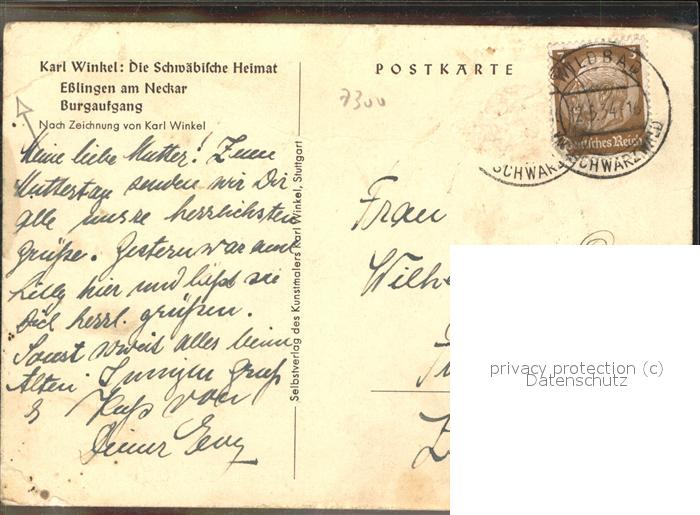 Karl Winkel: Die Schwäbische Heimat
Eßlingen am Neckar
Burgaufgang
Nach Zeichnung von Karl Winkel
POSTKARTE
7300
3
WILDBAD
12.5.34
Deutsches Reich
SCHWARZWALD
SCHWARZ
Meine liebe Mutter! Zum
Muttertag senden wir Dir
alle unsre herzlichsten
Grüße. Gestern war
Lilly hier und ließ sie
Dich herzl. grüßen.
Sonst weis alles beim
Alten. Innigen Gruß
& Kuß von
Deiner
Selbstverlag des Kunstmalers Karl Winkel, Stuttgart
Frau
Wilhe
privacy protection (c)
Datenschutz